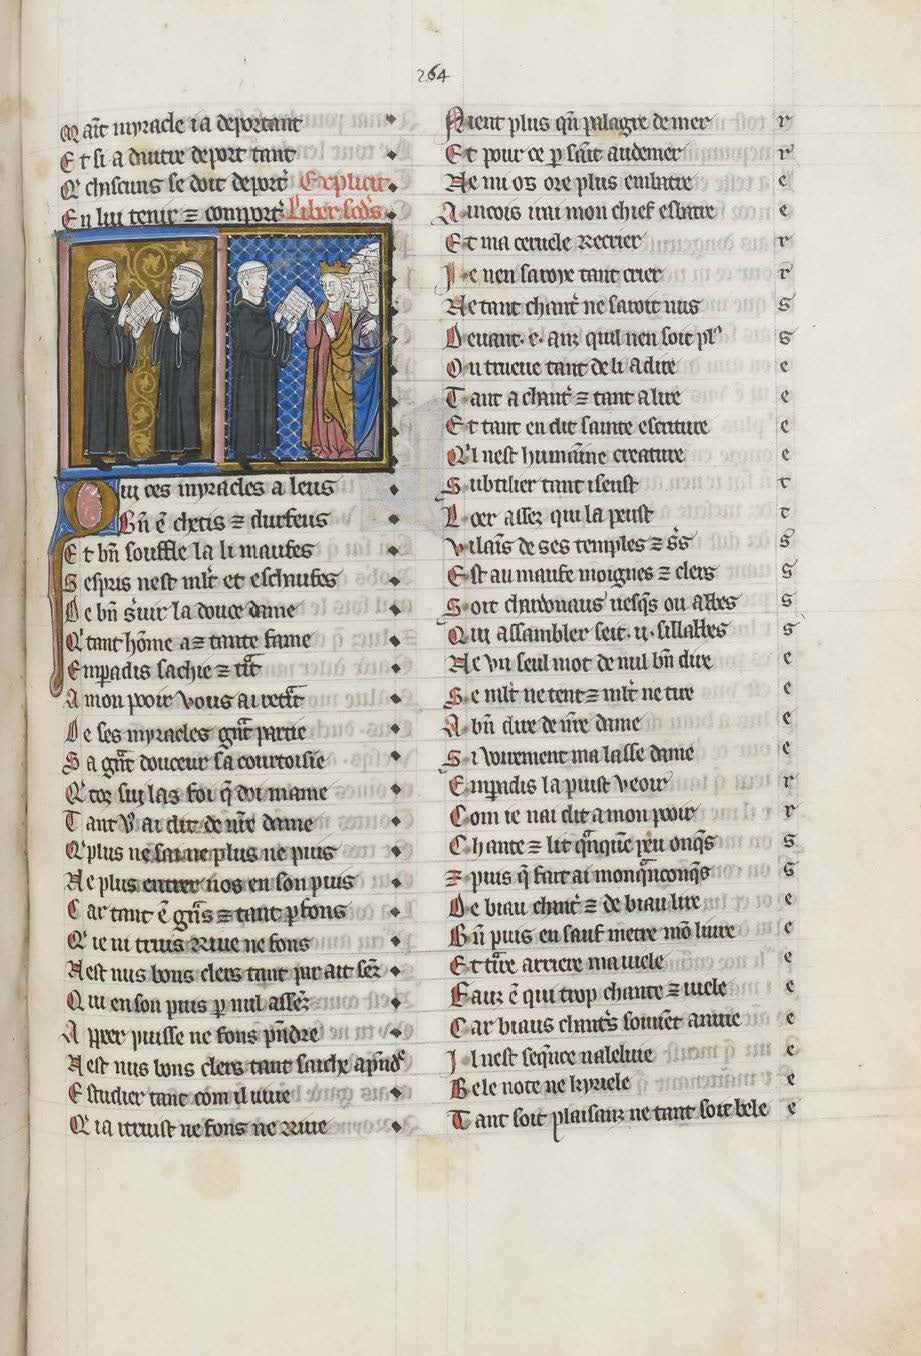 264
Mait myracle i a deportant
Et si a dautre deport tant
Q' chascuns se doit deport' Explicit
En lui tenir ⁊ comport' Liber scd's
Qui ces myracles a leus
Bn̄ ē chetis ⁊ durfeus
Et bn̄ souffle la li maufes
Sespris nest ml't et eschaufes
De bn̄ s'uir la douce dame
Q' tant hōme a ⁊ tante fame
Emparadis sachie ⁊ t͛it
A mon pooir vous ai ret͛it
De ses myracles gn̄t partie
Sa gn̄t douceur sa courtoisie
Q' toz sui las foi q̄ doi mame
Tant v' ai dit de n̄re dame
Q' plus ne sai ne plus ne puis
Ne plus entrer nos en son puis
Car tant ē gn̄s ⁊ tant p̱fons
Q' ie ni truis riue ne fons
Nest nus bons clers tant par ait sēz
Qui en son puis p nul assēz
Apper puisse ne fons pn̄dre
Nest nus bons clers tant sache apn̄d'
Estudier tant com il uiue
Q' ia itruist ne fons ne riue
Nient plus qn̄ palagre de mer r
Et pour ce p saīt audemer r
Ne mi os ore plus embatre e
Aincois irai mon chief esbatre e
Et ma ceruele recrier r
Je nen sauroye tant crier r
Ne tant chant' ne sauroit nus s
Deuant .c. anz quil nen soit pl' s
On trueue tant de li a dire e
Tant a chant' ⁊ tant a lire e
Et tant en dit sainte escriture e
Q'l nest humaīne creature e
Subtilier tant i seust t
Loer assez qui la peust t
Vilaīs de ses temples ⁊ s's s
Est au maufe moignes ⁊ clers s
Soit chardonaus uesq̄s ou abbes s
Qui assambler seit .ii. sillabbes s
Ne vn seul mot de nul bn̄ dire e
Se ml't ne tent ⁊ ml't ne tire e
A bn̄ dire de n̄re dame e
Si vourement ma lasse dame e
Emparadis la puist veoir r
Com ie nai dit a mon pooir r
Chante ⁊ lit q͛nque peu onq̄s s
⁊ puis q̄ fait ai mon q͛nconq̄s s
De biau chant' ⁊ de biau lire e
Bn̄ puis en sauf metre mō liure e
Et t͛ire arriere ma uiele e
Faux ē qui trop chante ⁊ uiele e
Car biaus chant's souuēt anuie e
Il nest seq̄nce naleluie e
Bele note ne kyriele e
Tant soit plaisanz ne tant soit bele e